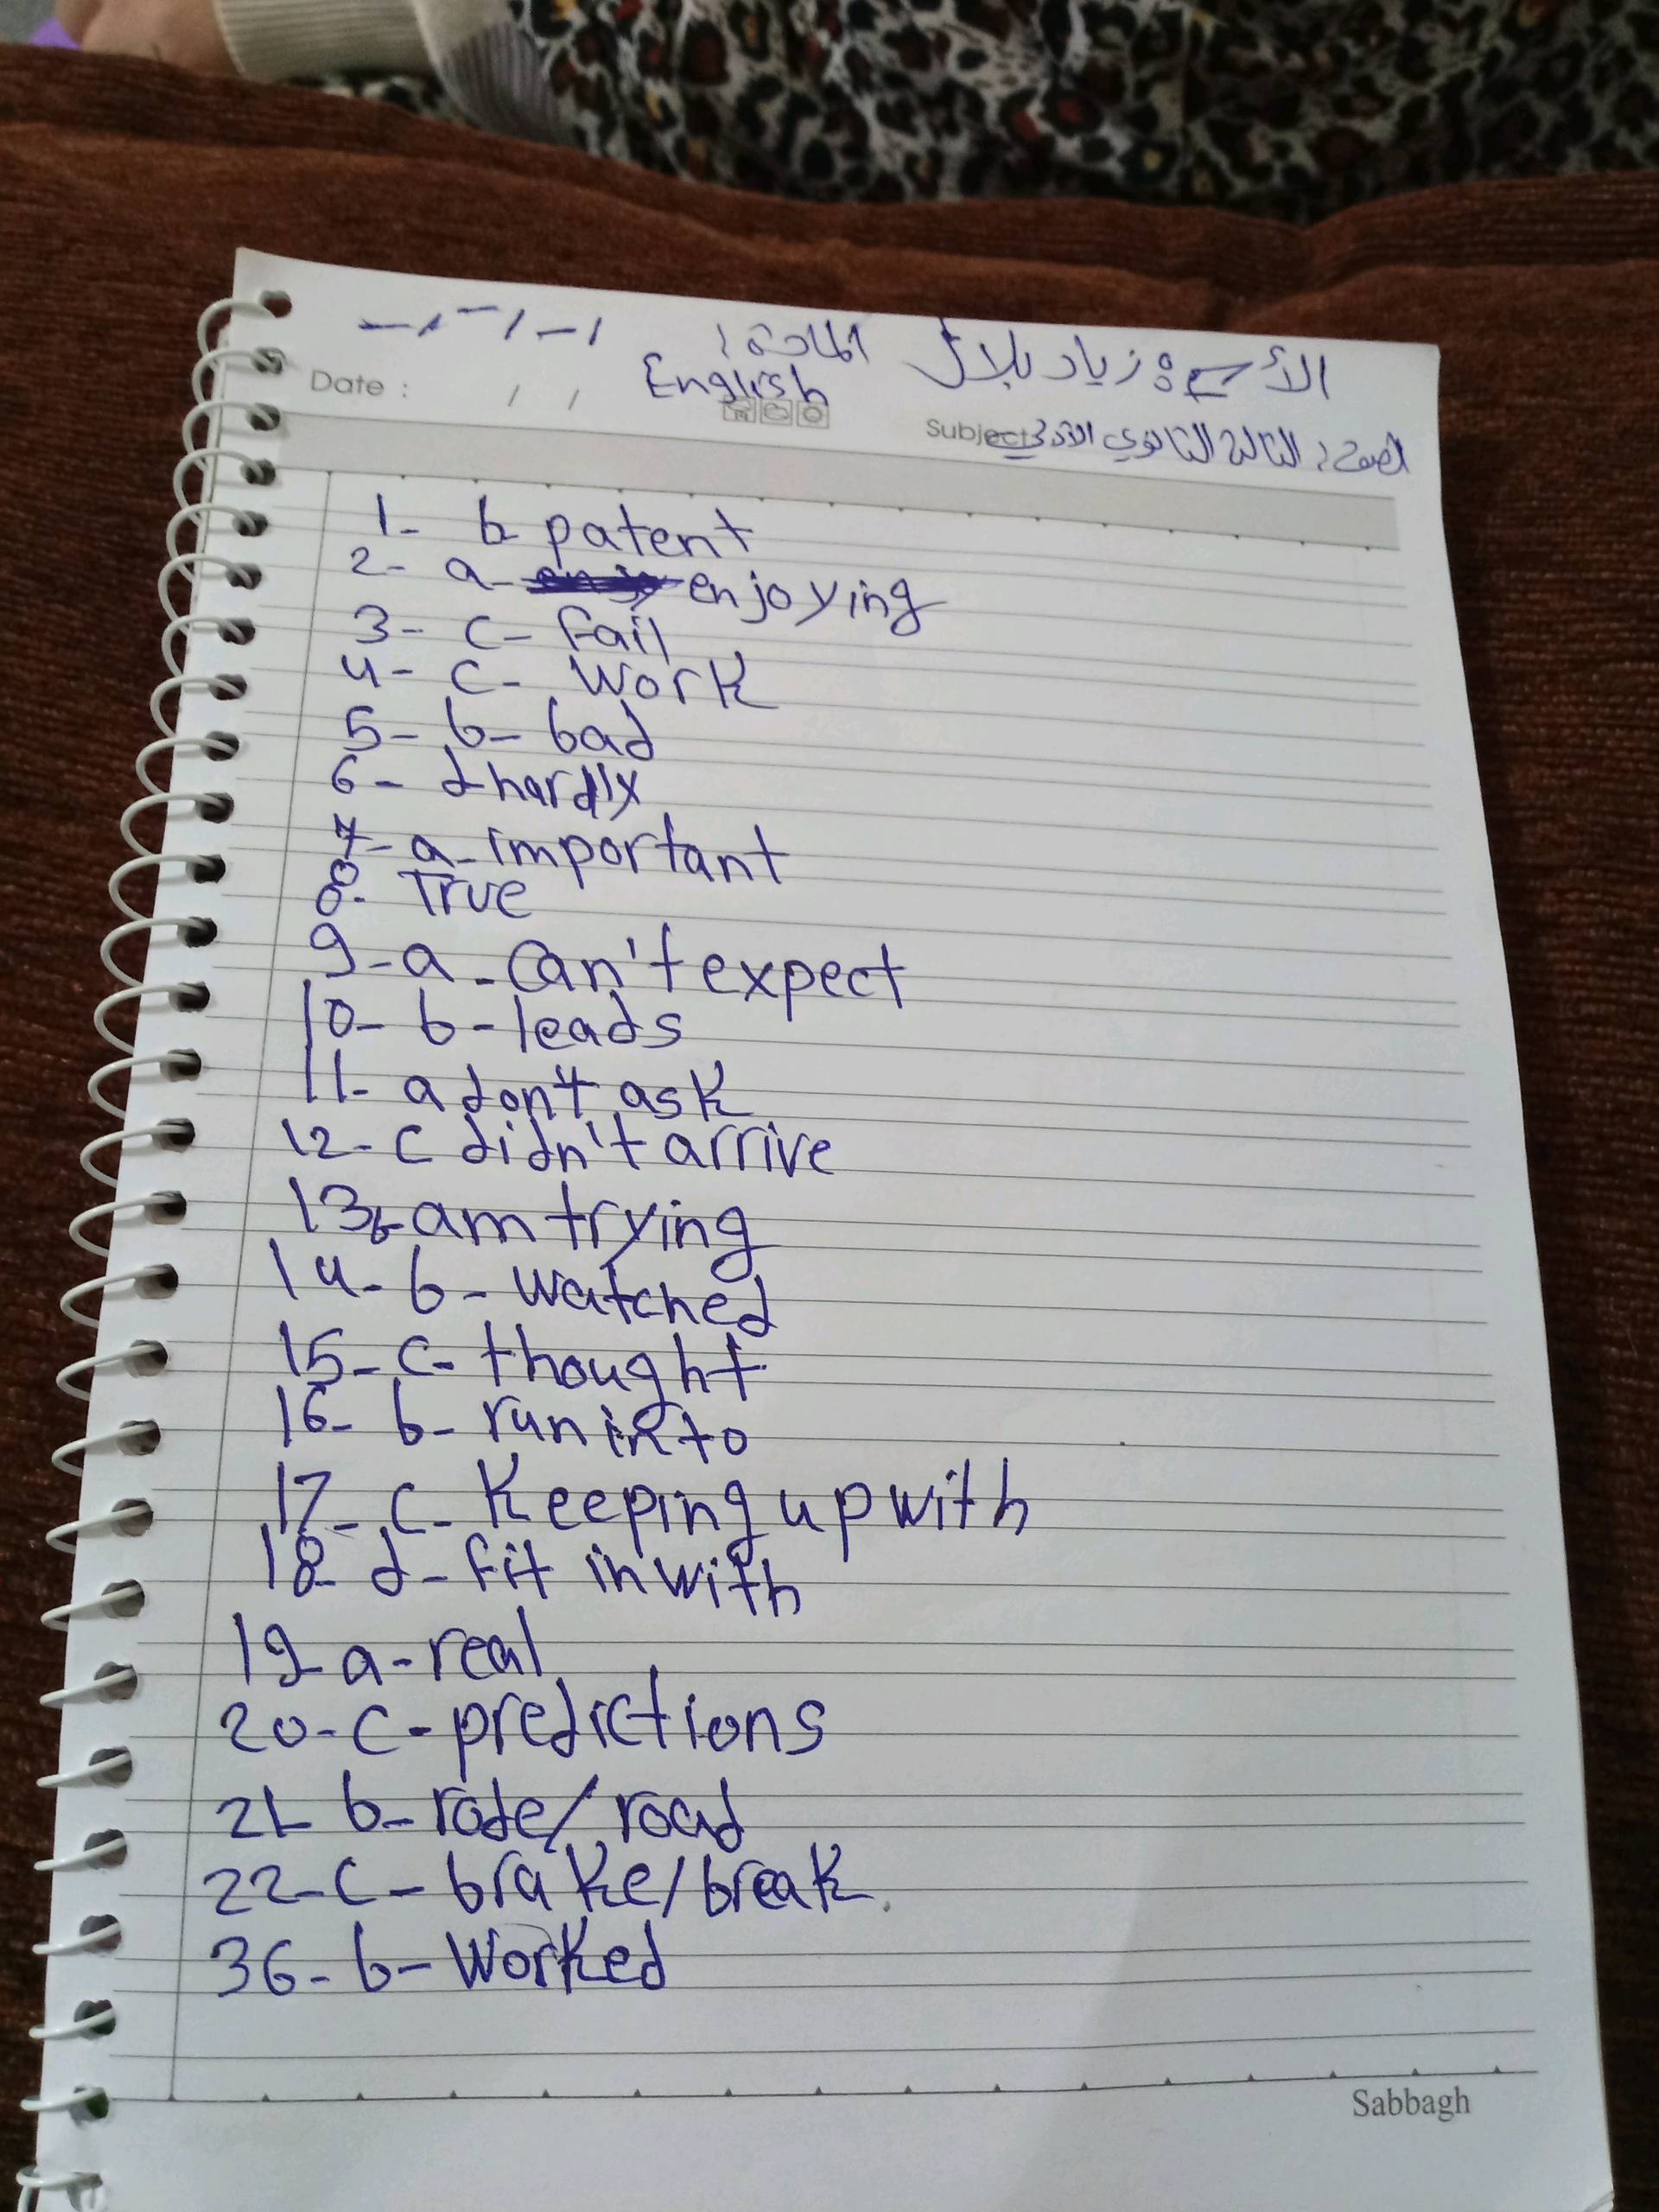 الأسم: زياد بلال المادة:
English
Date : / / Subject: الصف: الثالث الثانوي الأدبي
1- b- patent
2- a- enjoying
3- c- fail
4- c- work
5- b- bad
6- d hardly
7- a- important
8- True
9- a- can't expect
10- b- leads
11- a don't ask
12- c didn't arrive
13- b- am trying
14- b- watched
15- c- thought
16- b- run into
17- c- Keeping up with
18- d- fit in with
19- a- real
20- c- predictions
21- b- rode/ road
22- c- brake/break
36- b- Worked
Sabbagh